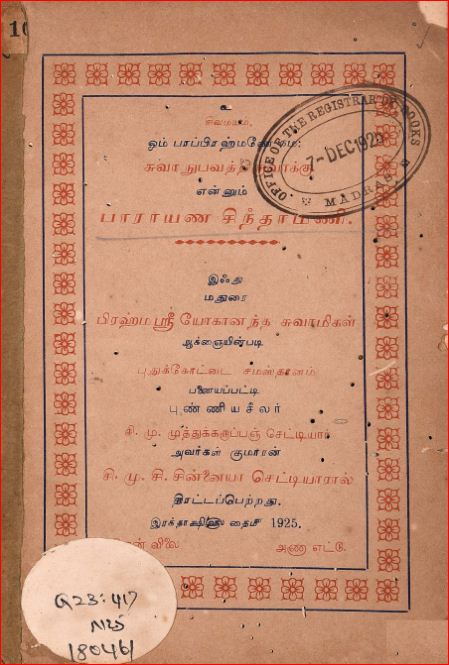 10
உ
சிவமயம்.
ஓம் பரப்பிரஹ்மணேநம:
சுவாநுபவத்
என்னும்
பாராயண சிந்தாமணி.
OFFICE OF THE REGISTRAR OF BOOKS
7-DEC 192
MADRAS
இஃது
மதுரை
பிரஹ்மஸ்ரீ யோகானந்த சுவாமிகள்
ஆக்ஞையின்படி
புதுக்கோட்டை சமஸ்தானம்
பனையப்பட்டி
புண்ணியசீலர்
சி. மு. முத்துக்கருப்பஞ் செட்டியார்
அவர்கள் குமாரன்
சி. மு. சி. சின்னையா செட்டியாரால்
திரட்டப்பெற்றது.
இரக்தாக்ஷி௵ தை௴ 1925.
விலை அணா எட்டு.
Q23:417
N25
18046